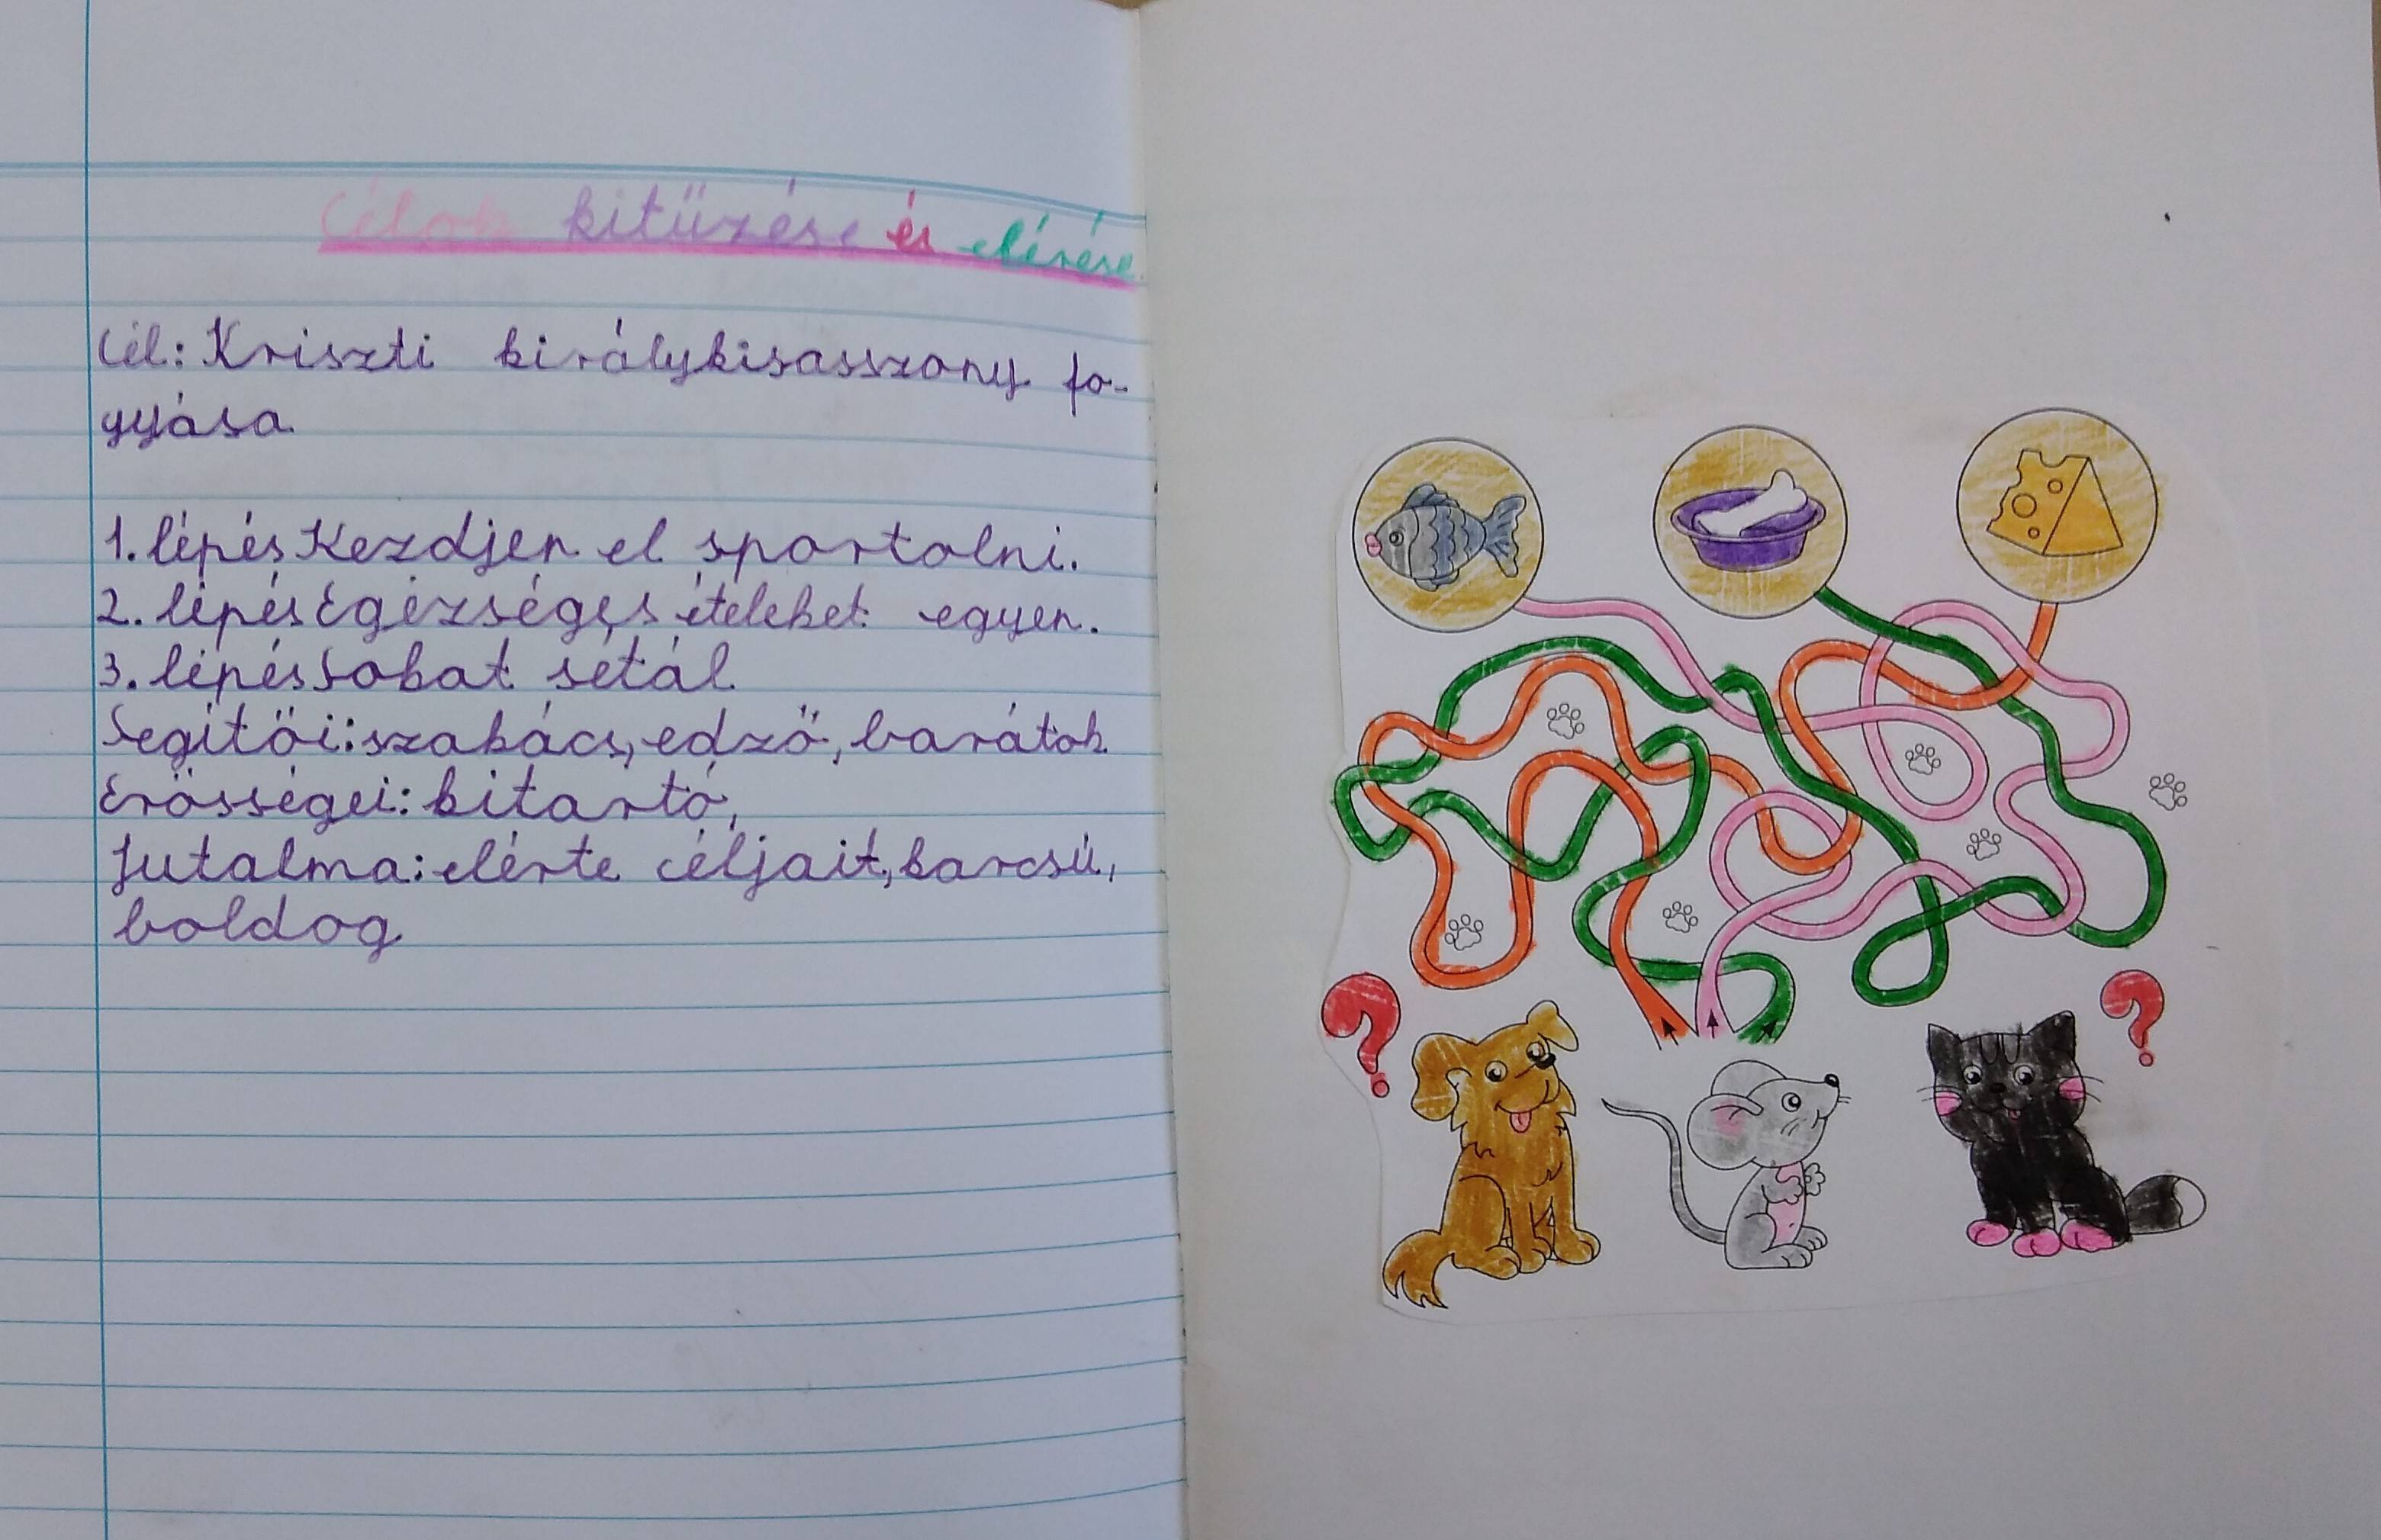 Célok kitűzése és elérése
Cél: Kriszti királykisasszony fo-
gyása.
1. lépés Kezdjen el sportolni.
2. lépés Egézséges ételeket egyen.
3. lépés Sokat sétál
Segítői: szakács, edző, barátok
Erősségei: kitartó,
Jutalma: elérte céljait, karcsú,
boldog